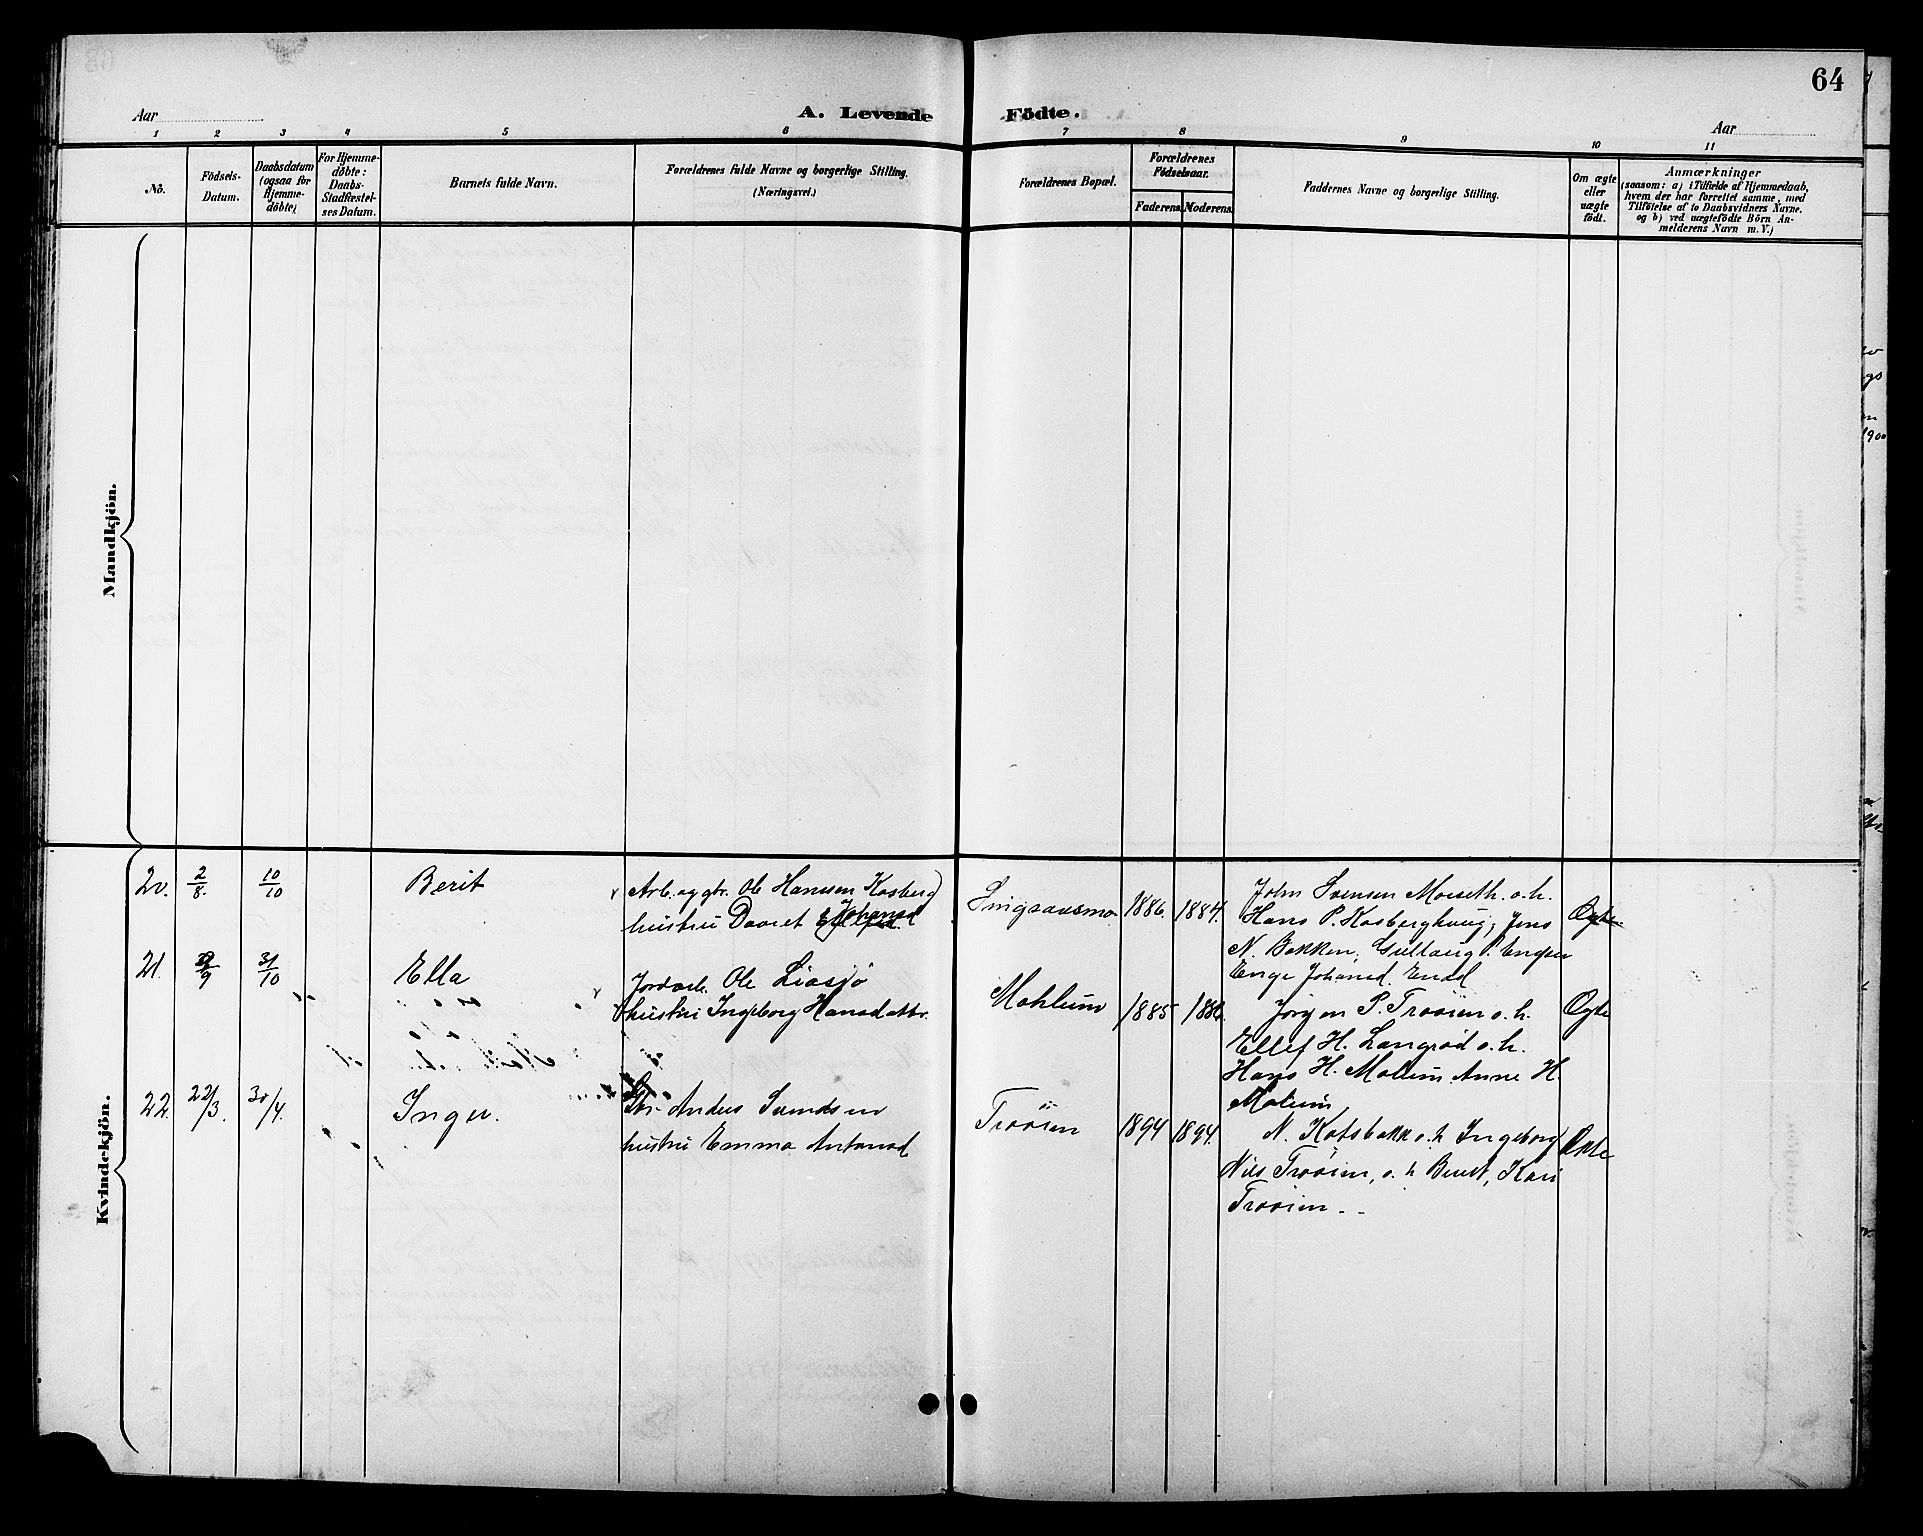 64
Aar
A. Levende Födte.
Aar
1 2 3 4 5 6 7 8 9 10 11
Nô.
Födsels-
Datum.
Daabsdatum
(ogsaa for
Hjemme-
döbte)
For Hjemme-
döbte:
Daabs-
Stadfæstel-
ses Datum.
Barnets fulde Navn.
Forældrenes fulde Navne og borgerlige Stilling.
(Næringsvei.)
Forældrenes Bopæl.
Forældrenes
Födselsaar.
Faderens. Moderens.
Faddernes Navne og borgerlige Stilling.
Om ægte
eller
uægte
födt.
Anmærkninger
(saasom: a) i Tilfælde af Hjemmedaab,
hvem der har forrettet samme, med
Tilföielse af to Daabsvidners Navne.
og b) ved uægtefödte Börn An-
melderens Navn m. V.)
Mandkjön.
Kvindekjön.
20. 2/8. 10/10 Berit
Arb. og gbr. Ole Hansen Kosberg
hustru Daaret Johansd
1886. 1884.
John Svensen Moseth. o. h.
Hans P. Kosberghaug, Jens
N. Bakken, P. Engen
Enge Johansd. Endd
Ægte
21. 31/10 Ella
Jordarb. Ole Liasjö
hustru Ingeborg Hansdattr.
Mohlum 1885 1886.
Jörgen P. Trööien o. h.
Ellef H. Langröd o. h.
Hans H. Molum Anne H.
Molum
Ægte
22. 22/3. 30/4. Inger.
Anders Svendsen
hustru Emma Antonsd
Trööien 1894 1894.
N. Kotsbakk o. h Ingeborg
Nils Trööien, o. h Beret, Kari
Trööien - -
Ækte